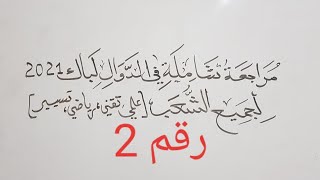 مُرَاجَعَة شَامِلَة فِي الدَّوَالِ لِبَاك 2021
لِجَمِيعِ الشُّعَبِ [علمي، تقني، رياضي، تسيير]
رقم 2